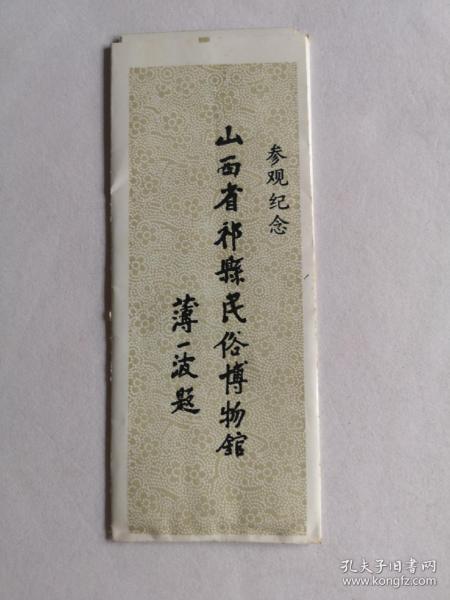 参观纪念
山西省祁縣民俗博物館
薄一波题
孔夫子旧书网
www.kongfz.com